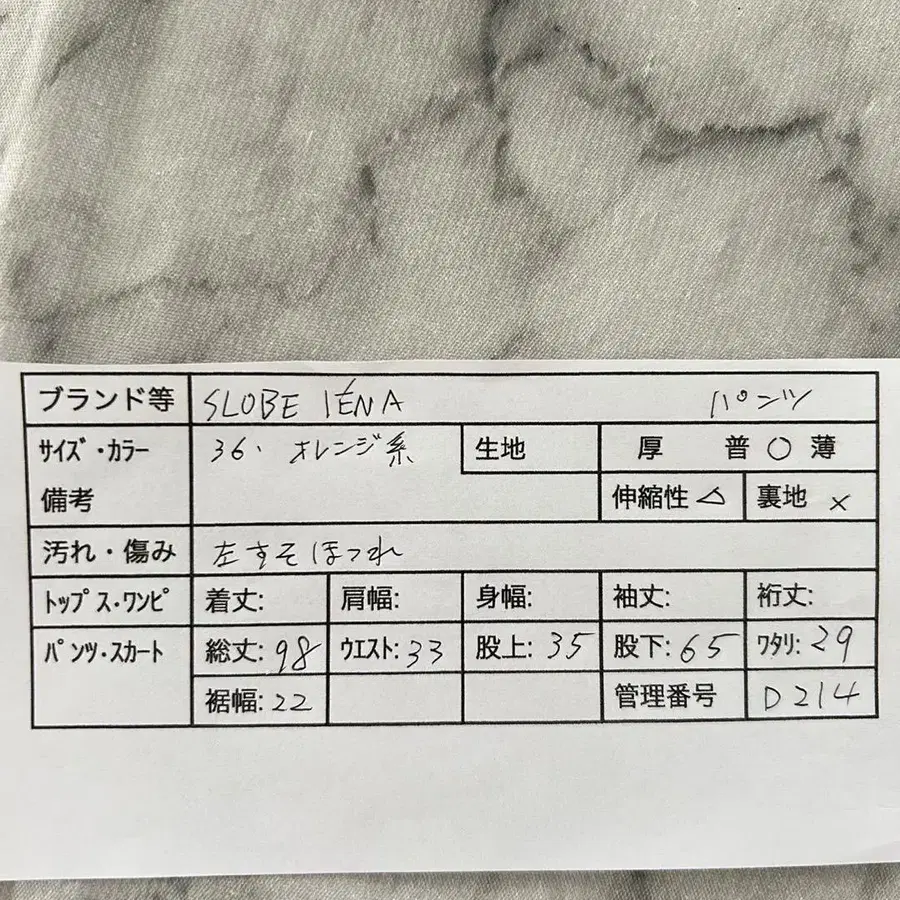 ブランド等 SLOBE IÉNA パンツ
サイズ・カラー 36. オレンジ系 生地 厚 普 ○ 薄
備考 伸縮性 △ 裏地 ×
汚れ・傷み 左すそほつれ
トップス・ワンピ 着丈: 肩幅: 身幅: 袖丈: 裄丈:
パンツ・スカート 総丈: 98 ウエスト: 33 股上: 35 股下: 65 ワタリ: 29
裾幅: 22 管理番号 D214